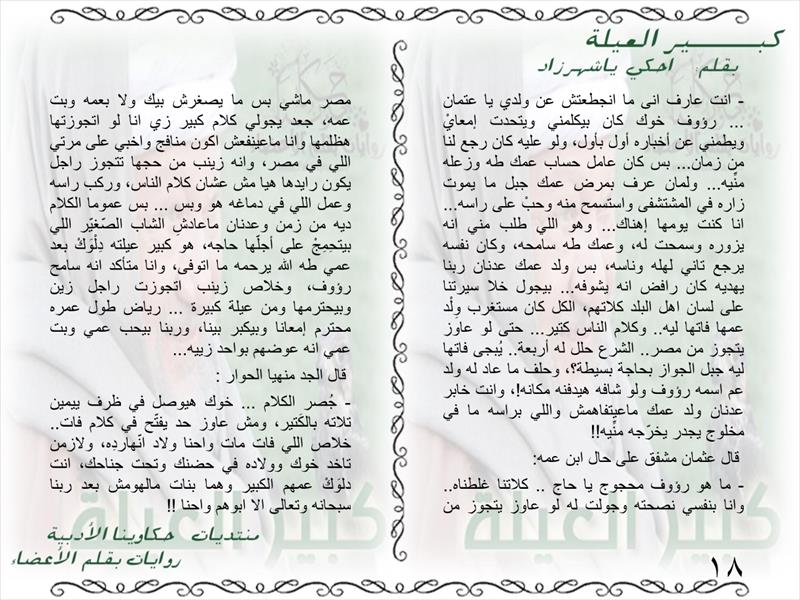 كبير العيلة
بقلم احكي ياشهرزاد
- انت عارف انى ما انجطعتش عن ولدي يا عتمان
... رؤوف خوك كان بيكلمني ويتحدت إمعايْ
ويطمني عن أخباره أول بأول، ولو عليه كان رجع لنا
من زمان... بس كان عامل حساب عمك طه وزعله
منِّيه... ولمان عرف بمرض عمك جبل ما يموت
زاره في المشتشفى واستسمح منه وحبْ على راسه...
انا كنت يومها إهناك... وهو اللي طلب مني انه
يزوره وسمحت له، وعمك طه سامحه، وكان نفسه
يرجع تاني لهله وناسه، بس ولد عمك عدنان ربنا
يهديه كان رافض انه يشوفه... بيجول خلا سيرتنا
على لسان اهل البلد كلاتهم، الكل كان مستغرب وِلْد
عمها فاتها ليه.. وكلام الناس كتير... حتى لو عاوز
يتجوز من مصر.. الشرع حلل له أربعة.. يُبجى فاتها
ليه جبل الجواز بحاجة بسيطة؟، وحلف ما عاد له ولد
عم اسمه رؤوف ولو شافه هيدفنه مكانه!، وانت خابر
عدنان ولد عمك ماعيتفاهمش واللي براسه ما في
مخلوج يجدر يخرّجه منِّيه!!
قال عثمان مشفق على حال ابن عمه:
- ما هو رؤوف محجوج يا حاج .. كلاتنا غلطناه..
وانا بنفسي نصحته وجولت له لو عاوز يتجوز من
مصر ماشي بس ما يصغرش بيك ولا بعمه وبت
عمه، جعد يجولي كلام كبير زي انا لو اتجوزتها
هظلمها وانا ماعينفعش اكون منافج واخبي على مرتي
اللي في مصر، وانه زينب من حجها تتجوز راجل
يكون رايدها هيا مش عشان كلام الناس، وركب راسه
وعمل اللي في دماغه هو وبس ... بس عموما الكلام
ديه من زمن وعدنان ماعادش الشاب الصّغيّر اللي
بيتحِمِجْ على أجلّها حاجه، هو كبير عيلته دِلْوَكْ بعد
عمي طه الله يرحمه ما اتوفى، وانا متأكد انه سامح
رؤوف، وخلاص زينب اتجوزت راجل زين
وبيحترمها ومن عيلة كبيرة ... رياض طول عمره
محترم إمعانا وبيكبر بينا، وربنا بيحب عمي وبت
عمي انه عوضهم بواحد زييه...
قال الجد منهيا الحوار :
- جُصر الكلام ... خوك هيوصل في ظرف ييمين
تلاته بالكَتير، ومش عاوز حد يفتّح في كلام فات..
خلاص اللي فات مات واحنا ولاد انّهاردِه، ولازمن
تاخد خوك وولاده في حضنك وتحت جناحك، انت
دلوَكْ عمهم الكبير وهما بنات مالهومش بعد ربنا
سبحانه وتعالى الا ابوهم واحنا !!
كبير العيلة
كبير العيلة
منتديات حكاوينا الأدبية
روايات بقلم الأعضاء
١٨